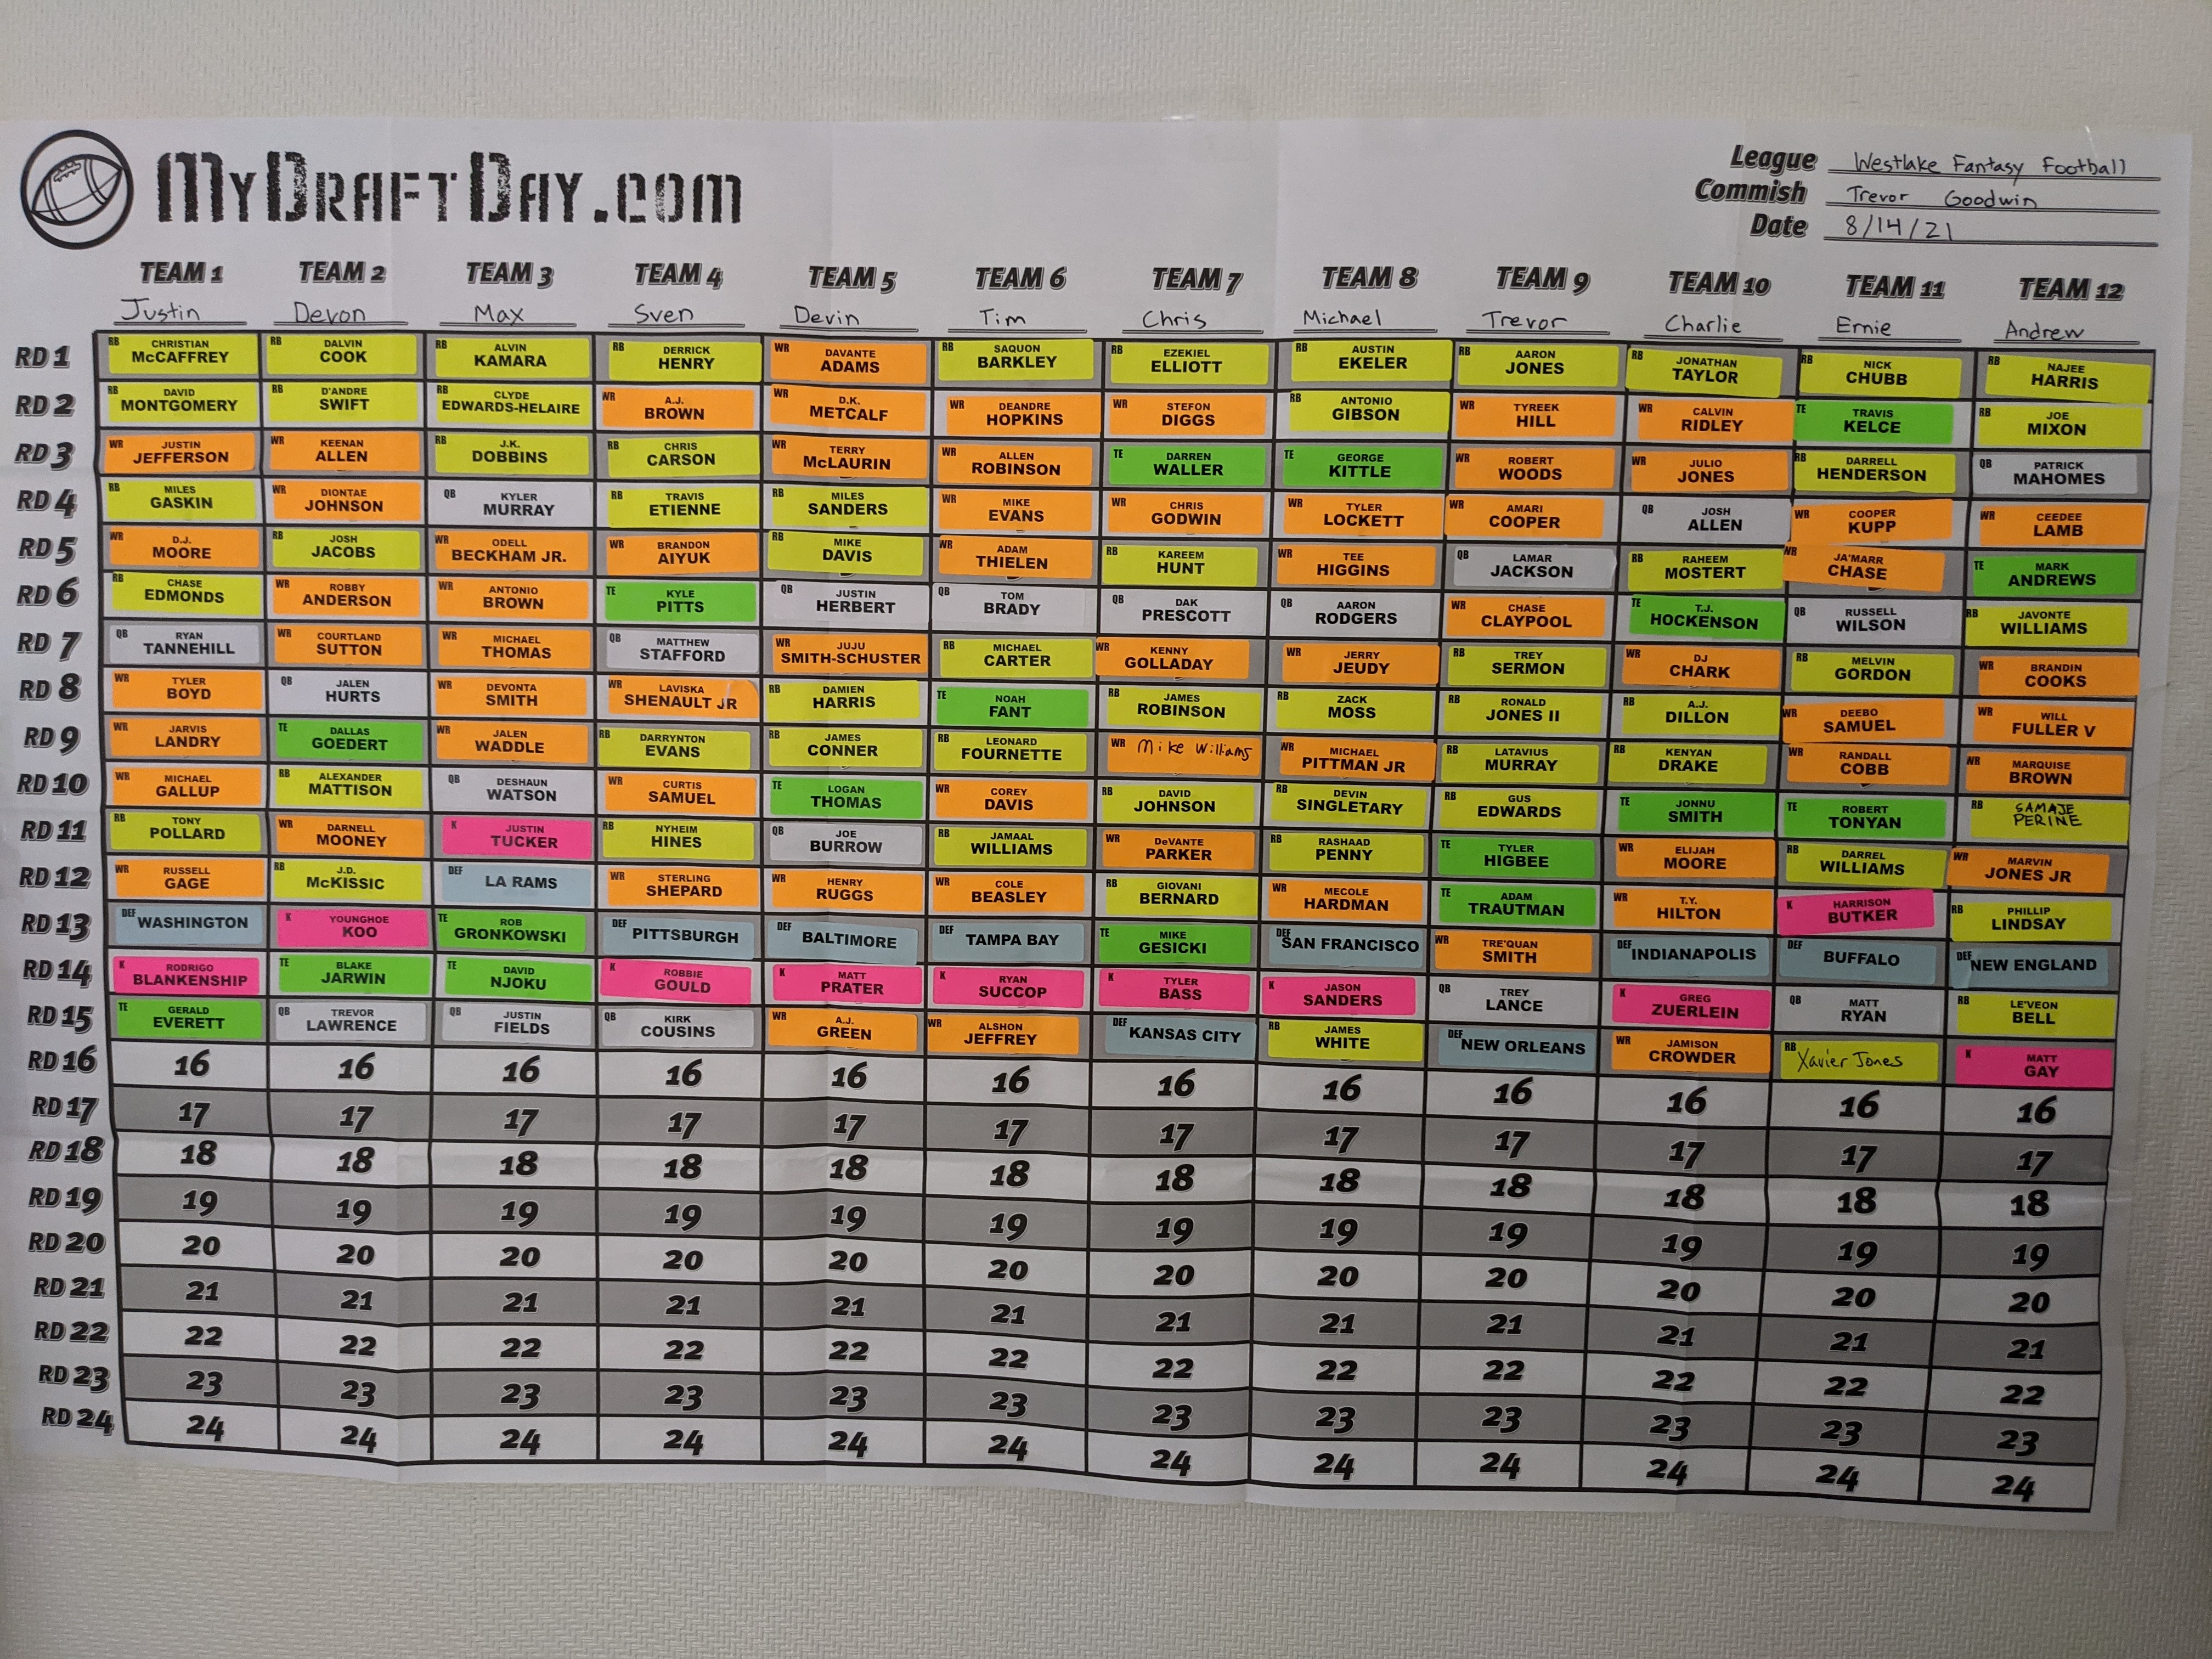 MyDraftDay.com
League Westlake Fantasy Football
Commish Trevor Goodwin
Date 8/14/21
TEAM 1 TEAM 2 TEAM 3 TEAM 4 TEAM 5 TEAM 6 TEAM 7 TEAM 8 TEAM 9 TEAM 10 TEAM 11 TEAM 12
Justin Devon Max Sven Devin Tim Chris Michael Trevor Charlie Ernie Andrew
RD 1 RB CHRISTIAN McCAFFREY RB DALVIN COOK RB ALVIN KAMARA RB DERRICK HENRY WR DAVANTE ADAMS RB SAQUON BARKLEY RB EZEKIEL ELLIOTT RB AUSTIN EKELER RB AARON JONES RB JONATHAN TAYLOR RB NICK CHUBB RB NAJEE HARRIS
RD 2 RB DAVID MONTGOMERY RB D'ANDRE SWIFT RB CLYDE EDWARDS-HELAIRE WR A.J. BROWN WR D.K. METCALF WR DEANDRE HOPKINS WR STEFON DIGGS RB ANTONIO GIBSON WR TYREEK HILL WR CALVIN RIDLEY TE TRAVIS KELCE RB JOE MIXON
RD 3 WR JUSTIN JEFFERSON WR KEENAN ALLEN RB J.K. DOBBINS RB CHRIS CARSON WR TERRY McLAURIN WR ALLEN ROBINSON TE DARREN WALLER TE GEORGE KITTLE WR ROBERT WOODS WR JULIO JONES RB DARRELL HENDERSON QB PATRICK MAHOMES
RD 4 RB MILES GASKIN WR DIONTAE JOHNSON QB KYLER MURRAY RB TRAVIS ETIENNE RB MILES SANDERS WR MIKE EVANS WR CHRIS GODWIN WR TYLER LOCKETT WR AMARI COOPER QB JOSH ALLEN WR COOPER KUPP WR CEEDEE LAMB
RD 5 WR D.J. MOORE RB JOSH JACOBS WR ODELL BECKHAM JR. WR BRANDON AIYUK RB MIKE DAVIS WR ADAM THIELEN RB KAREEM HUNT WR TEE HIGGINS QB LAMAR JACKSON RB RAHEEM MOSTERT WR JA'MARR CHASE TE MARK ANDREWS
RD 6 RB CHASE EDMONDS WR ROBBY ANDERSON WR ANTONIO BROWN TE KYLE PITTS QB JUSTIN HERBERT QB TOM BRADY QB DAK PRESCOTT QB AARON RODGERS WR CHASE CLAYPOOL TE T.J. HOCKENSON QB RUSSELL WILSON RB JAVONTE WILLIAMS
RD 7 QB RYAN TANNEHILL WR COURTLAND SUTTON WR MICHAEL THOMAS QB MATTHEW STAFFORD WR JUJU SMITH-SCHUSTER RB MICHAEL CARTER WR KENNY GOLLADAY WR JERRY JEUDY RB TREY SERMON WR DJ CHARK RB MELVIN GORDON WR BRANDIN COOKS
RD 8 WR TYLER BOYD QB JALEN HURTS WR DEVONTA SMITH WR LAVISKA SHENAULT JR RB DAMIEN HARRIS TE NOAH FANT RB JAMES ROBINSON RB ZACK MOSS RB RONALD JONES II RB A.J. DILLON WR DEEBO SAMUEL WR WILL FULLER V
RD 9 WR JARVIS LANDRY TE DALLAS GOEDERT WR JALEN WADDLE RB DARRYNTON EVANS RB JAMES CONNER RB LEONARD FOURNETTE WR Mike Williams WR MICHAEL PITTMAN JR RB LATAVIUS MURRAY RB KENYAN DRAKE WR RANDALL COBB WR MARQUISE BROWN
RD 10 WR MICHAEL GALLUP RB ALEXANDER MATTISON QB DESHAUN WATSON WR CURTIS SAMUEL TE LOGAN THOMAS WR COREY DAVIS RB DAVID JOHNSON RB DEVIN SINGLETARY RB GUS EDWARDS TE JONNU SMITH TE ROBERT TONYAN RB SAMAJE PERINE
RD 11 RB TONY POLLARD WR DARNELL MOONEY K JUSTIN TUCKER RB NYHEIM HINES QB JOE BURROW RB JAMAAL WILLIAMS WR DeVANTE PARKER RB RASHAAD PENNY TE TYLER HIGBEE WR ELIJAH MOORE RB DARREL WILLIAMS WR MARVIN JONES JR
RD 12 WR RUSSELL GAGE RB J.D. McKISSIC DEF LA RAMS WR STERLING SHEPARD WR HENRY RUGGS WR COLE BEASLEY RB GIOVANI BERNARD WR MECOLE HARDMAN TE ADAM TRAUTMAN WR T.Y. HILTON K HARRISON BUTKER RB PHILLIP LINDSAY
RD 13 DEF WASHINGTON K YOUNGHOE KOO TE ROB GRONKOWSKI DEF PITTSBURGH DEF BALTIMORE DEF TAMPA BAY TE MIKE GESICKI DEF SAN FRANCISCO WR TRE'QUAN SMITH DEF INDIANAPOLIS DEF BUFFALO DEF NEW ENGLAND
RD 14 K RODRIGO BLANKENSHIP TE BLAKE JARWIN TE DAVID NJOKU K ROBBIE GOULD K MATT PRATER K RYAN SUCCOP K TYLER BASS K JASON SANDERS QB TREY LANCE K GREG ZUERLEIN QB MATT RYAN RB LE'VEON BELL
RD 15 TE GERALD EVERETT QB TREVOR LAWRENCE QB JUSTIN FIELDS QB KIRK COUSINS WR A.J. GREEN WR ALSHON JEFFREY DEF KANSAS CITY RB JAMES WHITE DEF NEW ORLEANS WR JAMISON CROWDER RB Xavier Jones K MATT GAY
RD 16 16 16 16 16 16 16 16 16 16 16 16 16
RD 17 17 17 17 17 17 17 17 17 17 17 17 17
RD 18 18 18 18 18 18 18 18 18 18 18 18 18
RD 19 19 19 19 19 19 19 19 19 19 19 19 19
RD 20 20 20 20 20 20 20 20 20 20 20 20 20
RD 21 21 21 21 21 21 21 21 21 21 21 21 21
RD 22 22 22 22 22 22 22 22 22 22 22 22 22
RD 23 23 23 23 23 23 23 23 23 23 23 23 23
RD 24 24 24 24 24 24 24 24 24 24 24 24 24